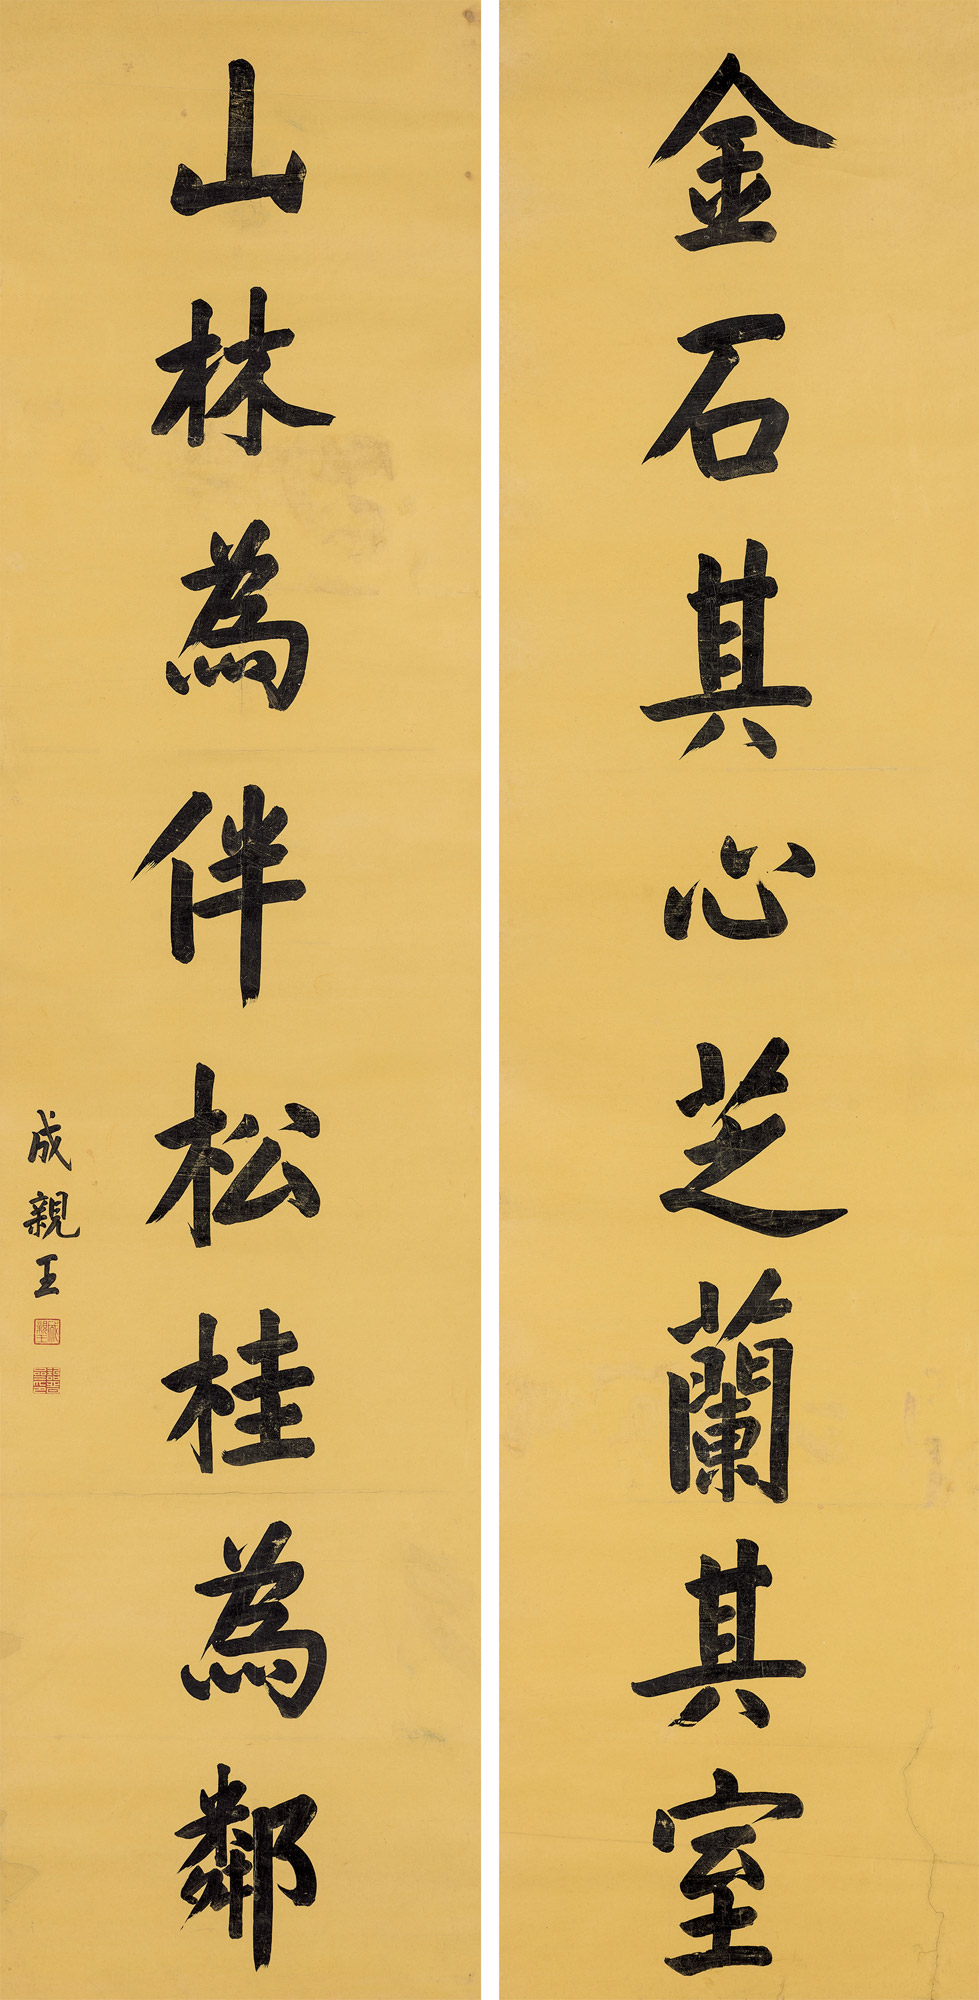 金石其心芝蘭其室
山林為伴松桂為鄰
成親王